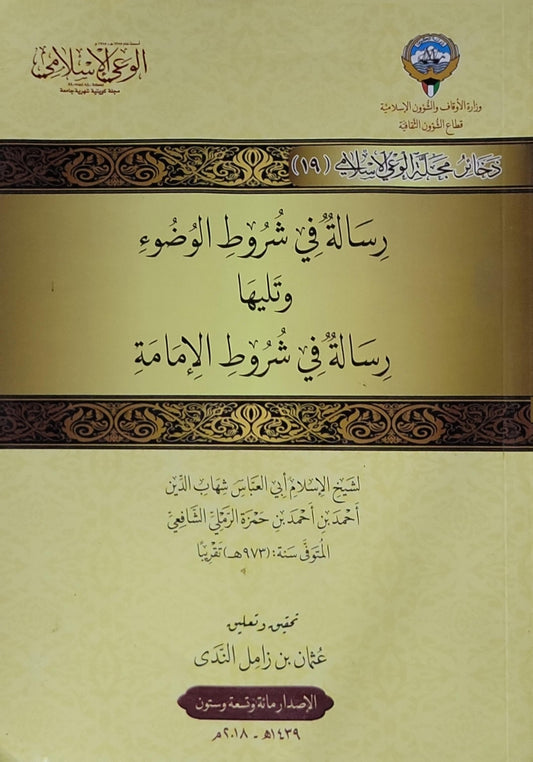 الوعي الإسلامي
مجلة كويتية شهرية جامعة
وزارة الأوقاف والشؤون الإسلامية
قطاع الشؤون الثقافية
ذخائر مجلة الوعي الإسلامي (١٩)
رِسَالَةٌ فِي شُرُوطِ الوُضُوءِ
وَتَليهَا
رِسَالَةٌ فِي شُرُوطِ الإِمَامَةِ
لشَيخِ الإِسلَامِ أبي العَبَّاسِ شهَابِ الدِّين
أَحمَدَ بنِ أَحمَدَ بنِ حَمزَة الرَّمليِّ الشَّافِعيِّ
المُتوفَّى سَنة: (٩٧٣هـ) تَقْرِيبًا
تحقيق وتعليق
عُثمَان بن زامِل النَّدَى
الإصدار مائة وتسعة وستون
١٤٣٩هـ - ٢٠١٨م